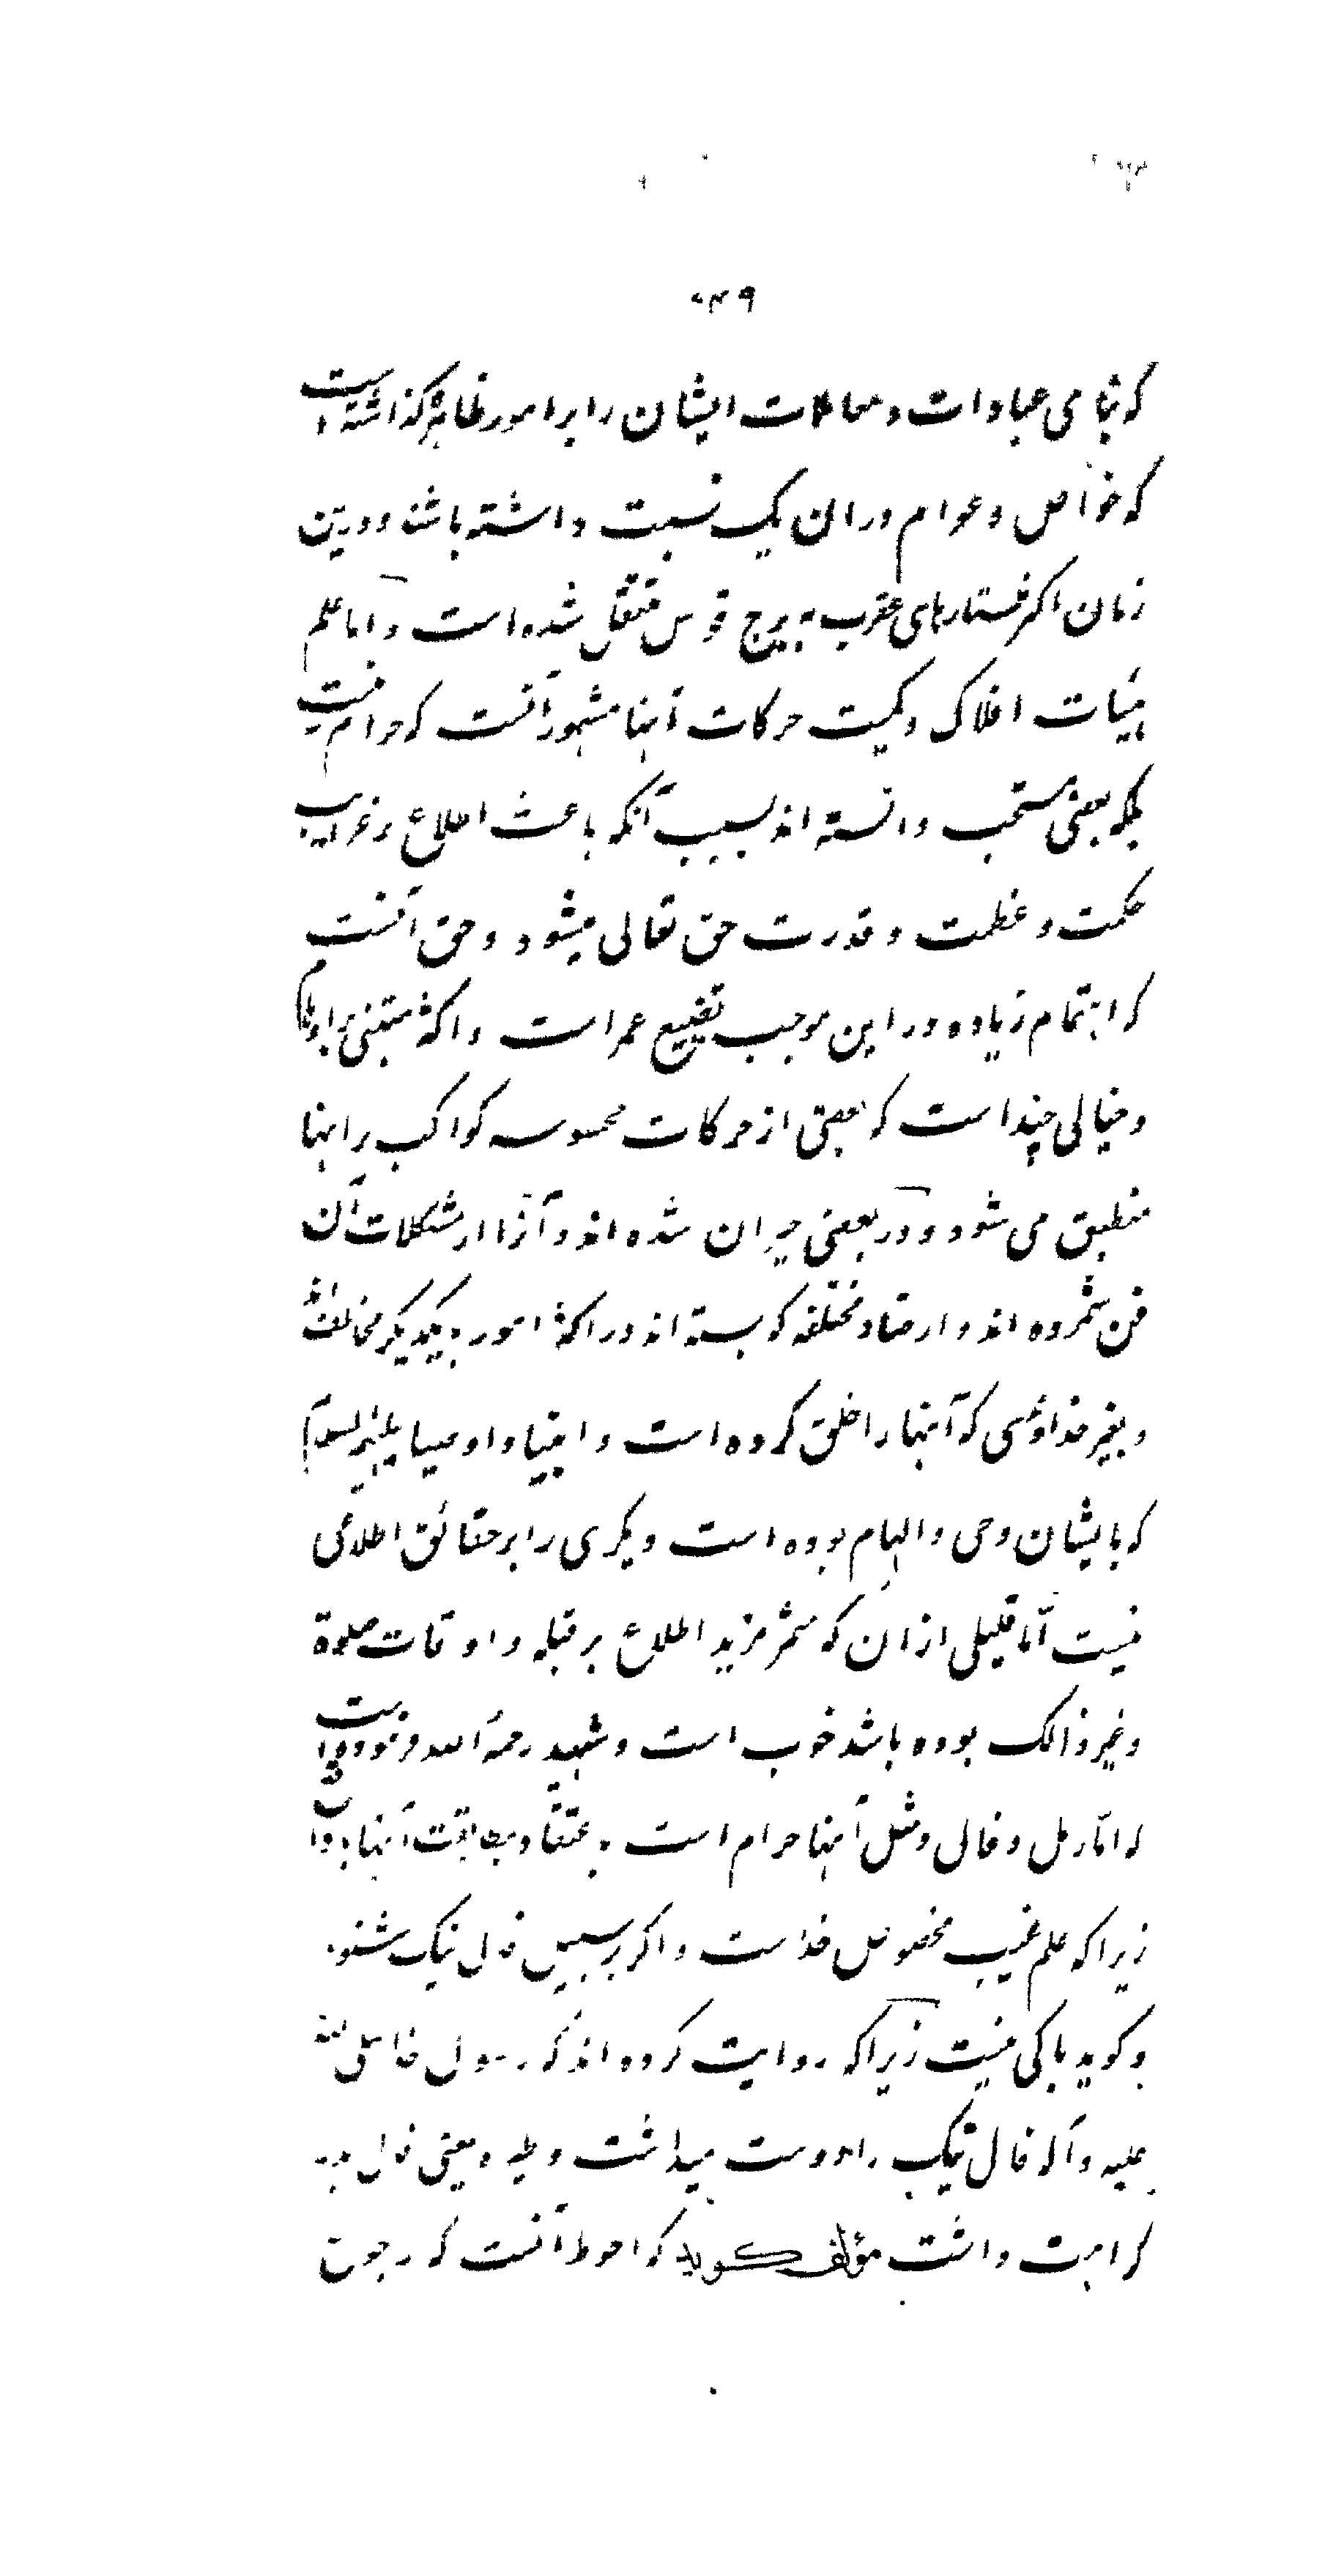 ۰۴۹
که تمامی عبادات و معاملات ایشان را بر امور ظاهره گذاشته است
که خواص و عوام در آن یک نسبت داشته باشند و درین
زمان اکثر ستارهای عقرب به برج قوس منتقل شده است و اما علم
هیئات افلاک و کمیت حرکات آنها مشهور آنست که حرام نیست
بلکه بعضی مستحب دانسته اند بسبب آنکه باعث اطلاع بر غرایب
حکمت و عظمت و قدرت حق تعالی میشود و حق آنست
که اهتمام زیاده در این موجب تضییع عمر است و اکثر مبتنی بر اوهام
و خیالی چند است که بعضی از حرکات محسوسه کواکب بر آنها
منطبق می شود و در بعضی حیران شده اند و آنرا از مشکلات آن
فن شمرده اند و ارصاد مختلفه که بسته اند در اکثر امور با یکدیگر مخالف اند
و بغیر خداوندی که آنها را خلق کرده است و انبیاء و اوصیا علیهم السلام
که بایشان وحی و الهام بوده است دیگری را بر حقائق اطلاعی
نیست امّا قلیلی از آن که مثمر مزید اطلاع بر قبله و اوقات صلوة
و غیر ذالک بوده باشد خوب است و شهید رحمه الله فرموده است
که امّا رمل و فالی و مثل آنها حرام است به اعتقاد مطابقت آنها با واقع
زیرا که علم غیب مخصوص خداست و اگر بر سبیل فال نیک شنود
و گوید باکی نیست زیرا که روایت کرده اند که رسول خدا صلی الله
علیه و آله فال نیک را دوست میداشت و طیره یعنی فال بد را
کراهت داشت مؤلف گوید که احوط آنست که رجوع